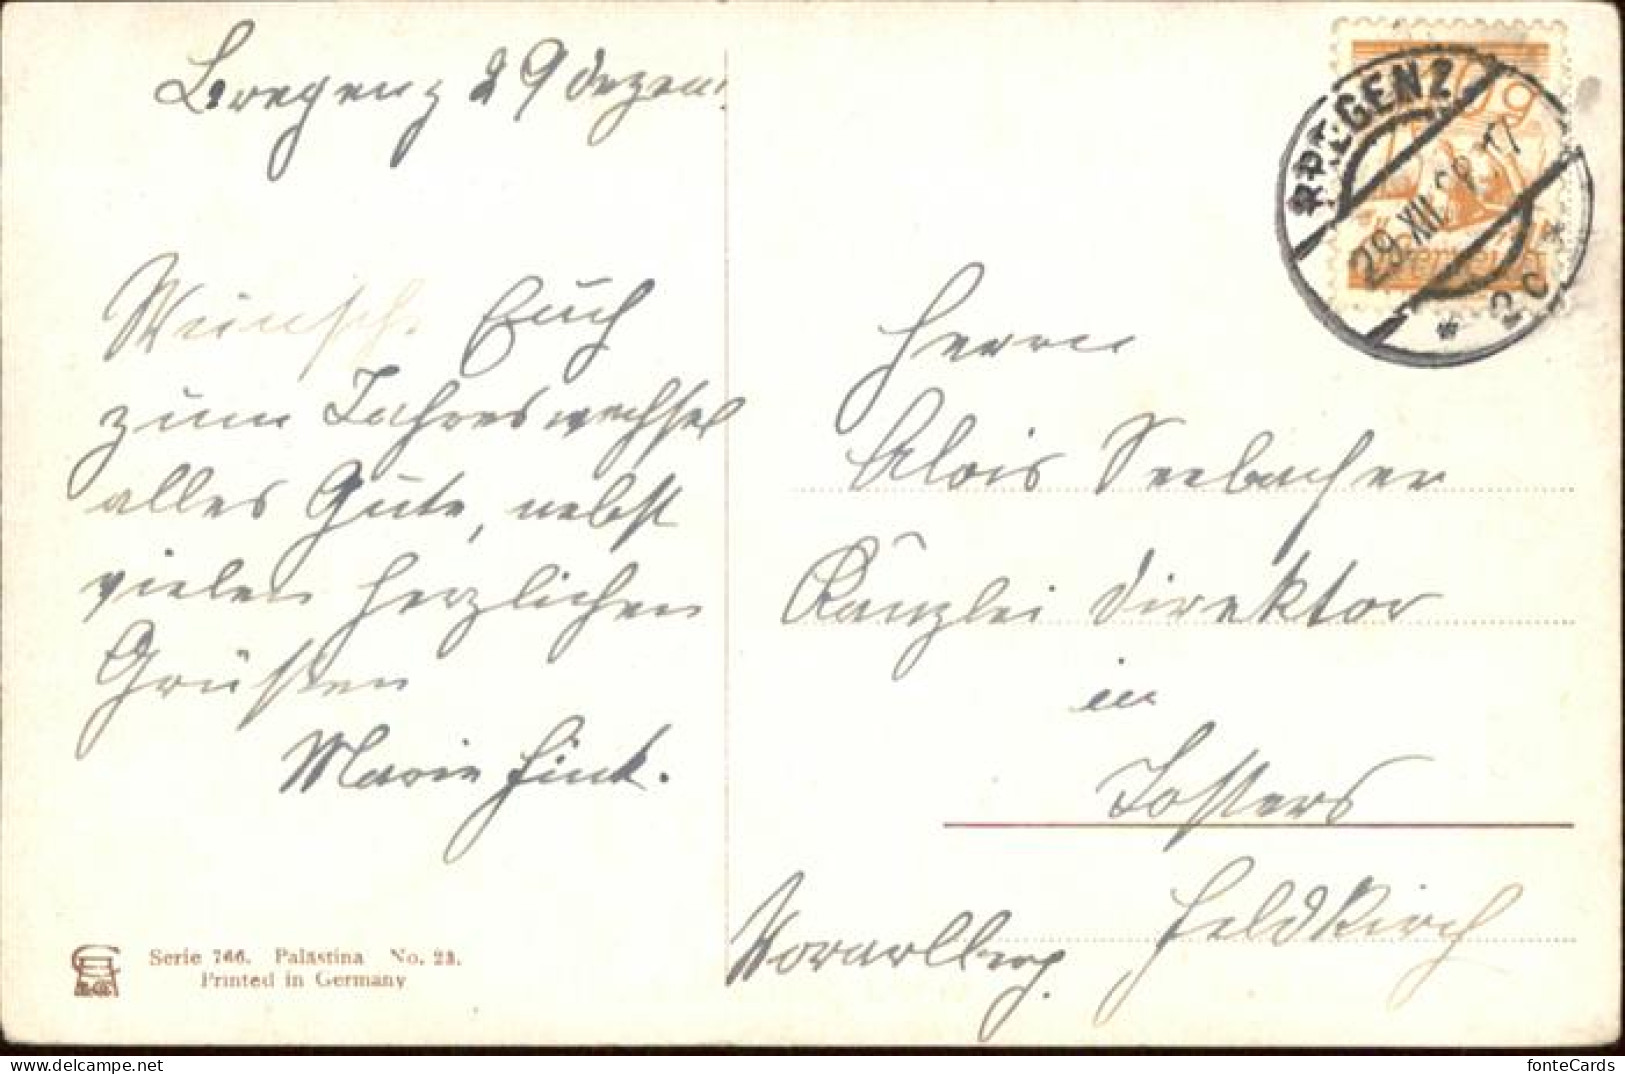 Bregenz 29 Dezem.
Wünsche Euch
zum Jahreswechsel
alles Gute, nebst
vielen herzlichen
Grüßen
Marie Fink.
Serie 766. Palästina No. 23.
Printed in Germany
BREGENZ
29.XII.28.17
* 2c *
10 g
Österreich
Herrn
Alois Seebacher
Kanzlei Direktor
in
Tosters
Feldkirch
Vorarlberg.
fonteCards